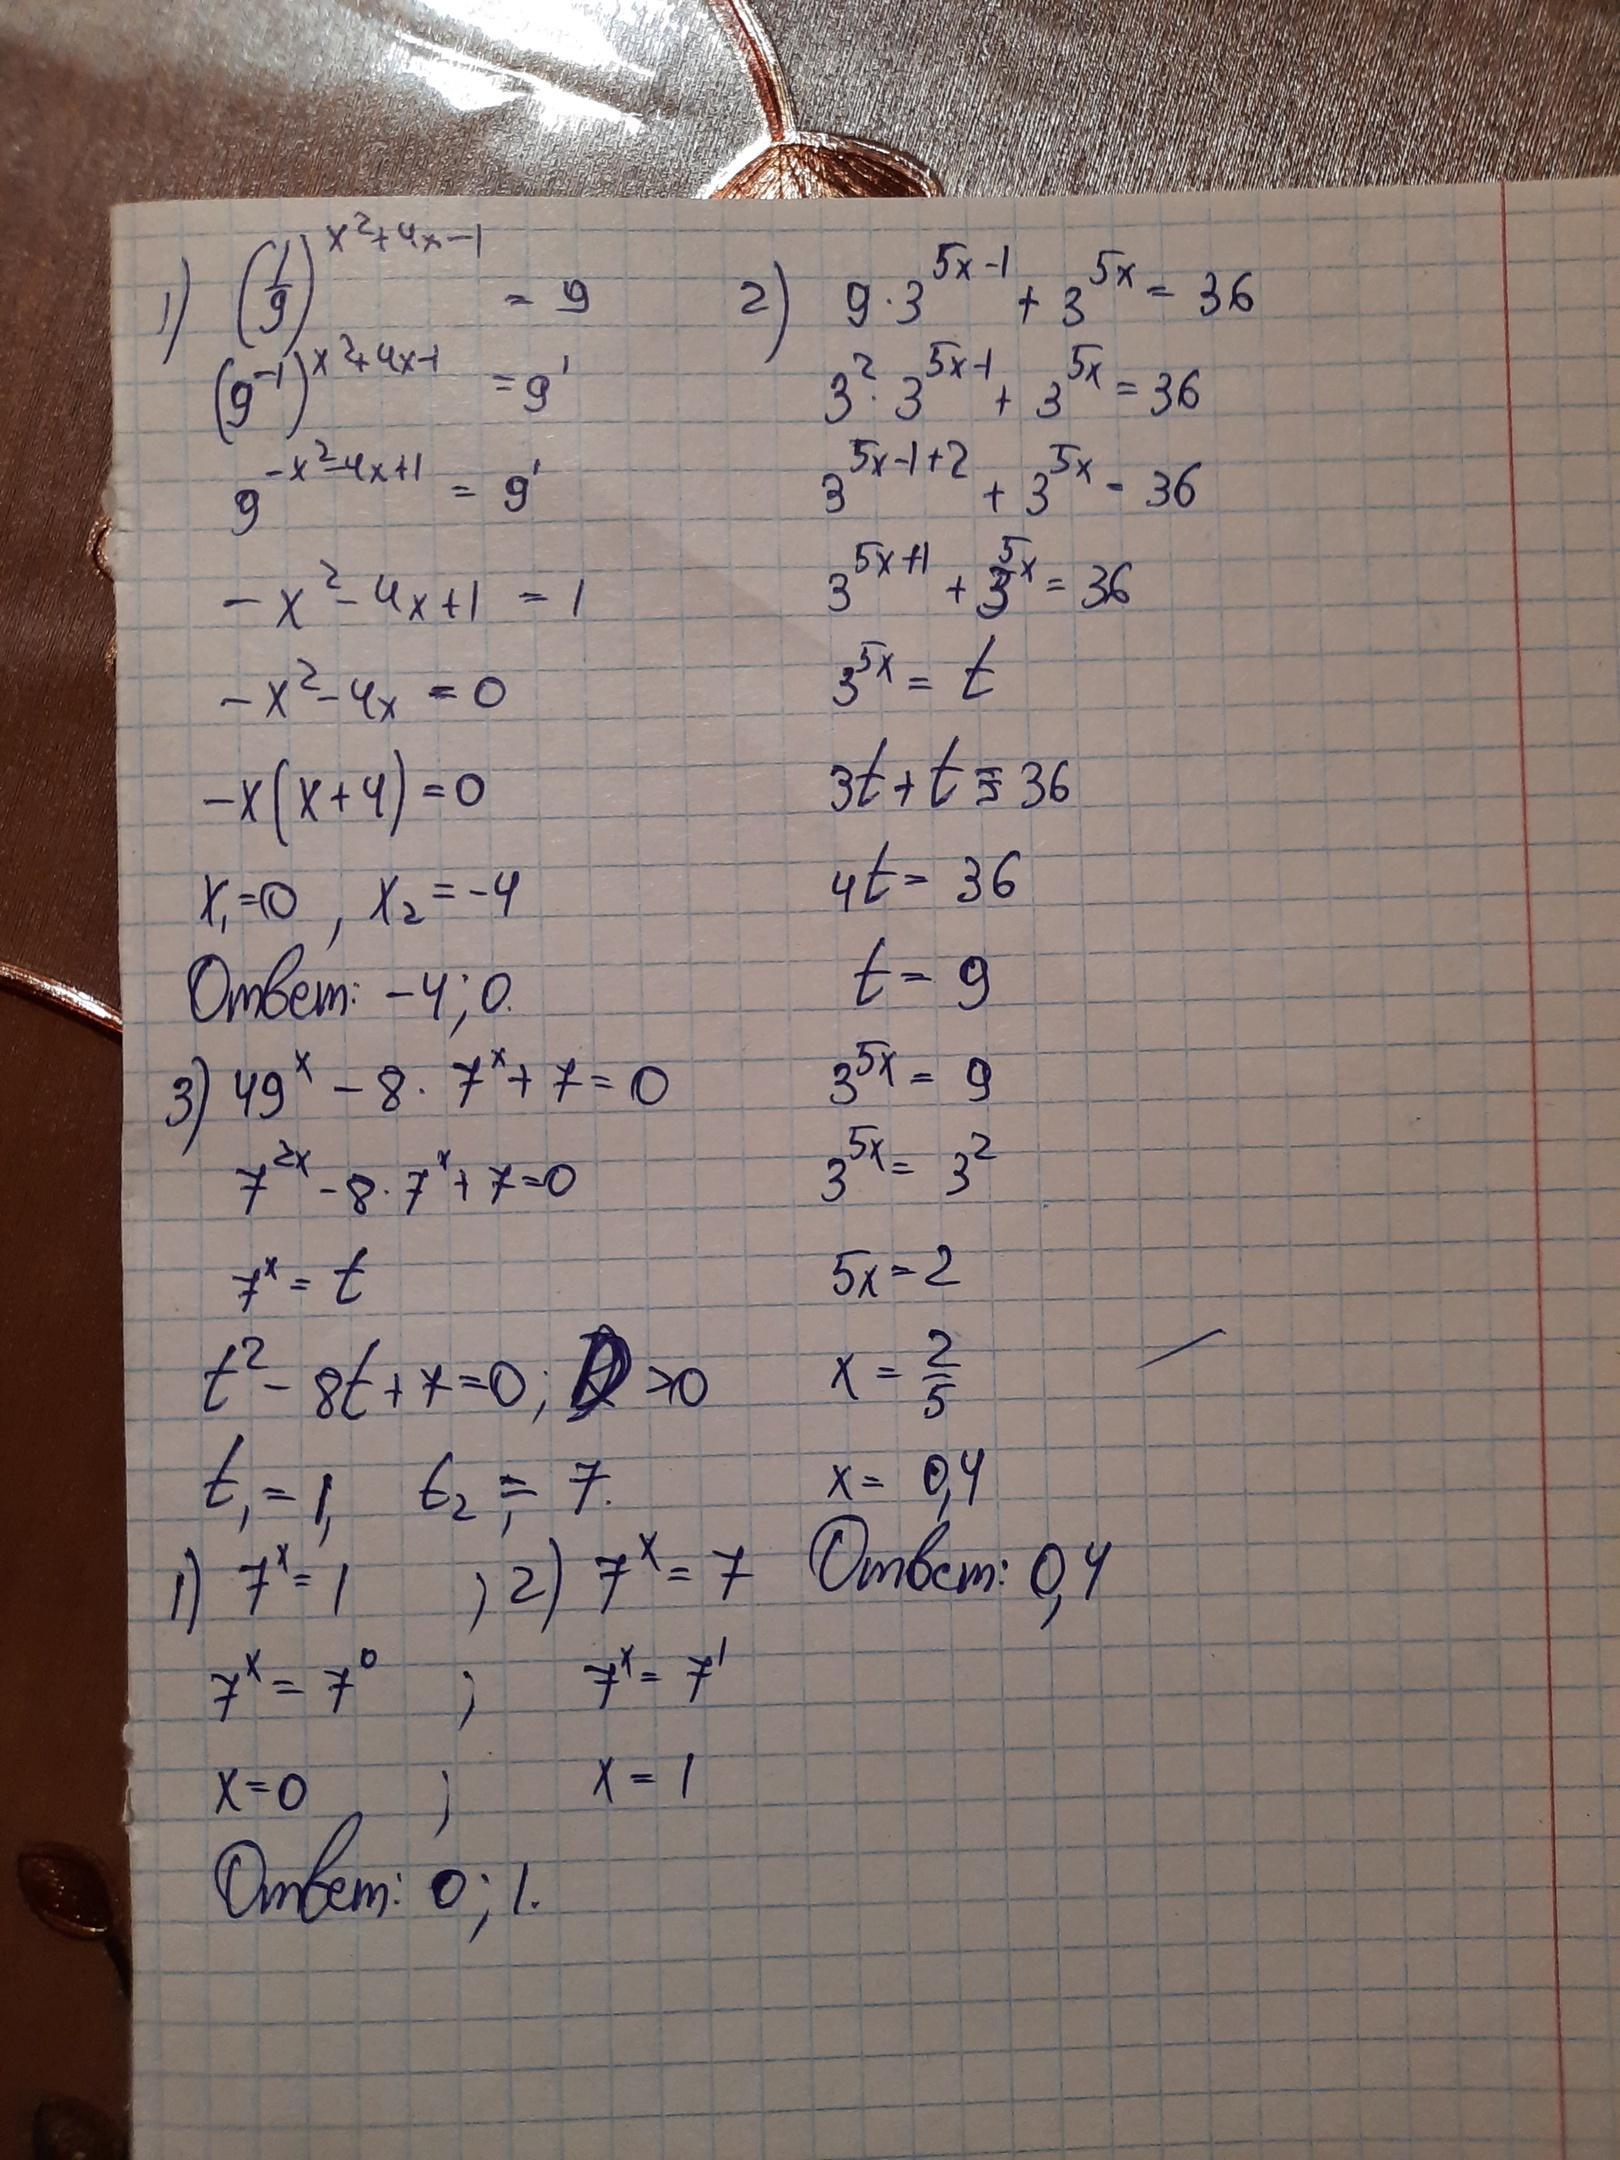 1) (1/9)^(x²+4x-1) = 9
(9⁻¹)^(x²+4x-1) = 9¹
9^(-x²-4x+1) = 9¹
-x²-4x+1 = 1
-x²-4x = 0
-x(x+4) = 0
x₁=0, x₂=-4
Ответ: -4; 0.
3) 49^x - 8·7^x + 7 = 0
7^(2x) - 8·7^x + 7 = 0
7^x = t
t² - 8t + 7 = 0; D > 0
t₁ = 1, t₂ = 7.
1) 7^x = 1 ; 2) 7^x = 7
7^x = 7⁰ ; 7^x = 7¹
x = 0 ; x = 1
Ответ: 0; 1.
2) 9·3^(5x-1) + 3^(5x) = 36
3²·3^(5x-1) + 3^(5x) = 36
3^(5x-1+2) + 3^(5x) = 36
3^(5x+1) + 3^(5x) = 36
3^(5x) = t
3t + t = 36
4t = 36
t = 9
3^(5x) = 9
3^(5x) = 3²
5x = 2
x = 2/5
x = 0,4
Ответ: 0,4